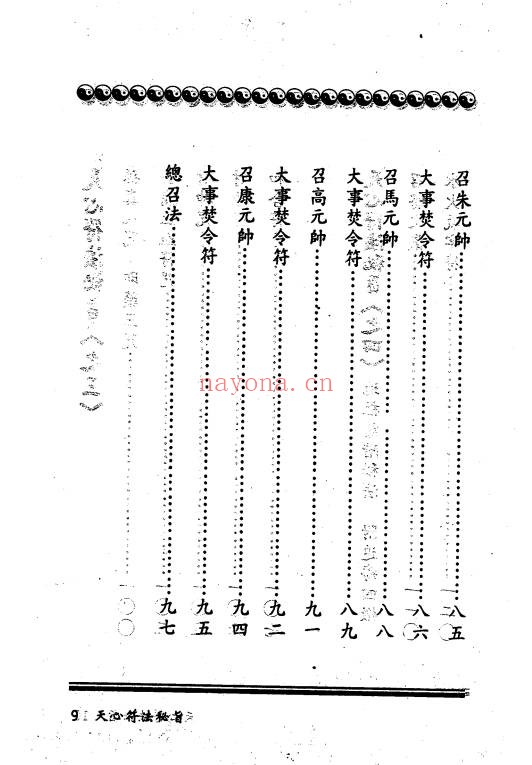 召朱元帥……八五
大事焚令符……八六
召馬元帥……八八
大事焚令符……八九
召高元帥……九一
大事焚令符……九二
召康元帥……九四
大事焚令符……九五
總召法……九七
nayona.cn
9 天心符法秘旨